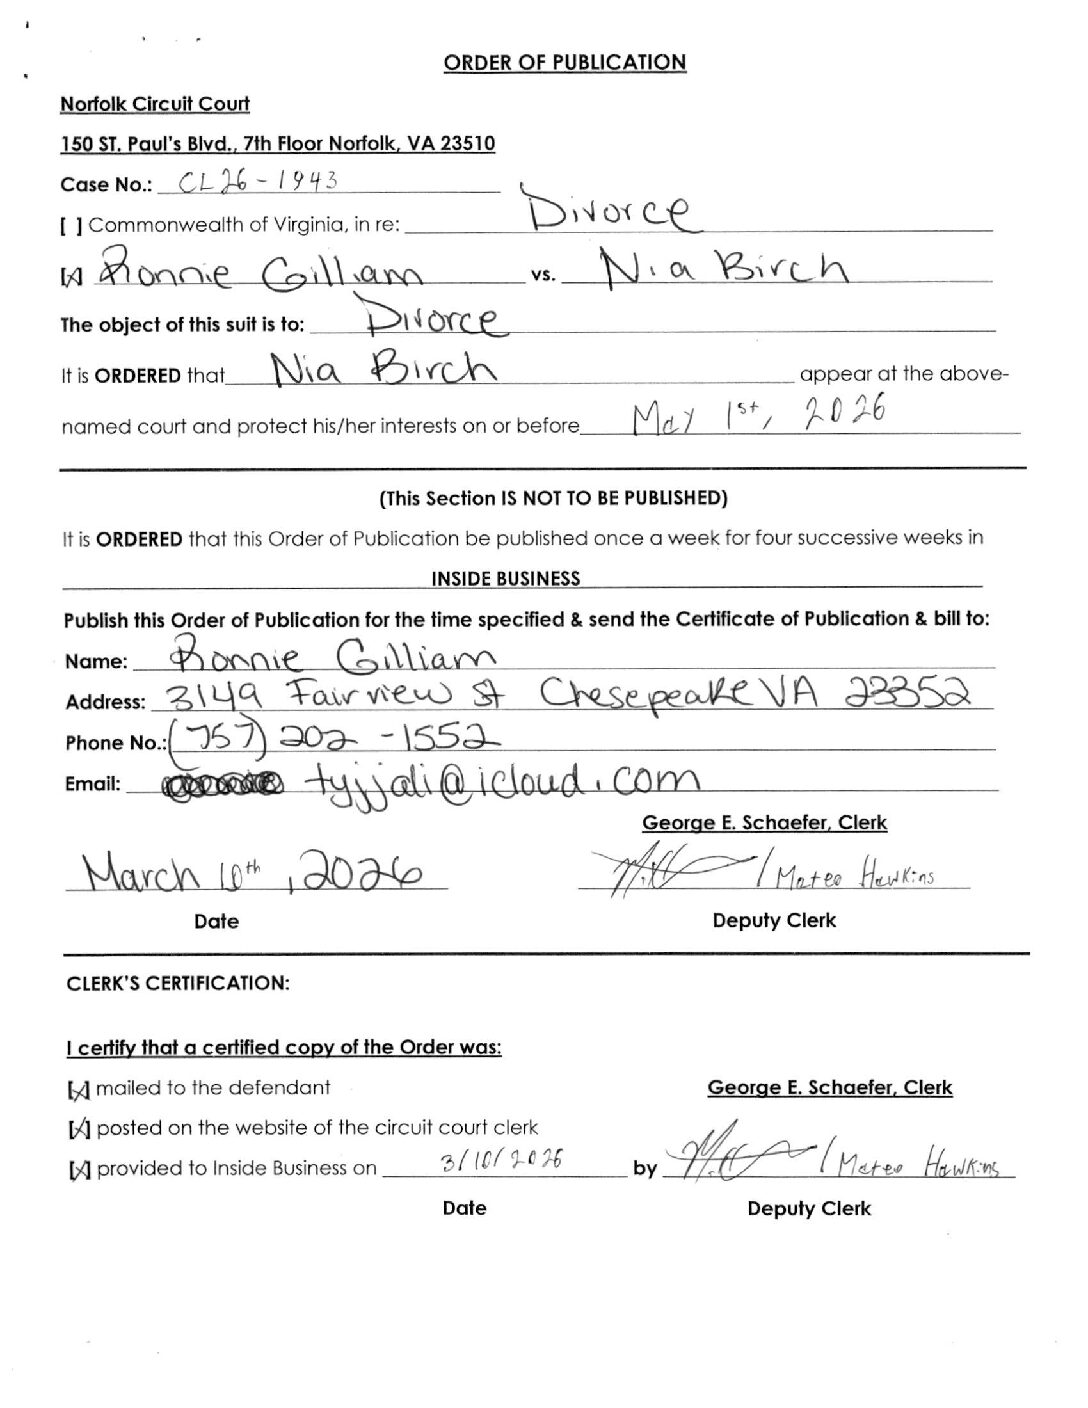 ORDER OF PUBLICATION
Norfolk Circuit Court
150 ST. Paul's Blvd., 7th Floor Norfolk, VA 23510
Case No.: CL26-1943
[ ] Commonwealth of Virginia, in re: Divorce
[x] Ronnie Gilliam vs. Nia Birch
The object of this suit is to: Divorce
It is ORDERED that Nia Birch appear at the above-
named court and protect his/her interests on or before May 1st, 2026
(This Section IS NOT TO BE PUBLISHED)
It is ORDERED that this Order of Publication be published once a week for four successive weeks in
INSIDE BUSINESS
Publish this Order of Publication for the time specified & send the Certificate of Publication & bill to:
Name: Ronnie Gilliam
Address: 3149 Fairview St Chesepeake VA 23352
Phone No.: (757) 202-1552
Email: tyjjali@icloud.com
George E. Schaefer, Clerk
March 10th, 2026 / Mateo Hawkins
Date Deputy Clerk
CLERK'S CERTIFICATION:
I certify that a certified copy of the Order was:
[x] mailed to the defendant George E. Schaefer, Clerk
[x] posted on the website of the circuit court clerk
[x] provided to Inside Business on 3/10/2026 by / Mateo Hawkins
Date Deputy Clerk